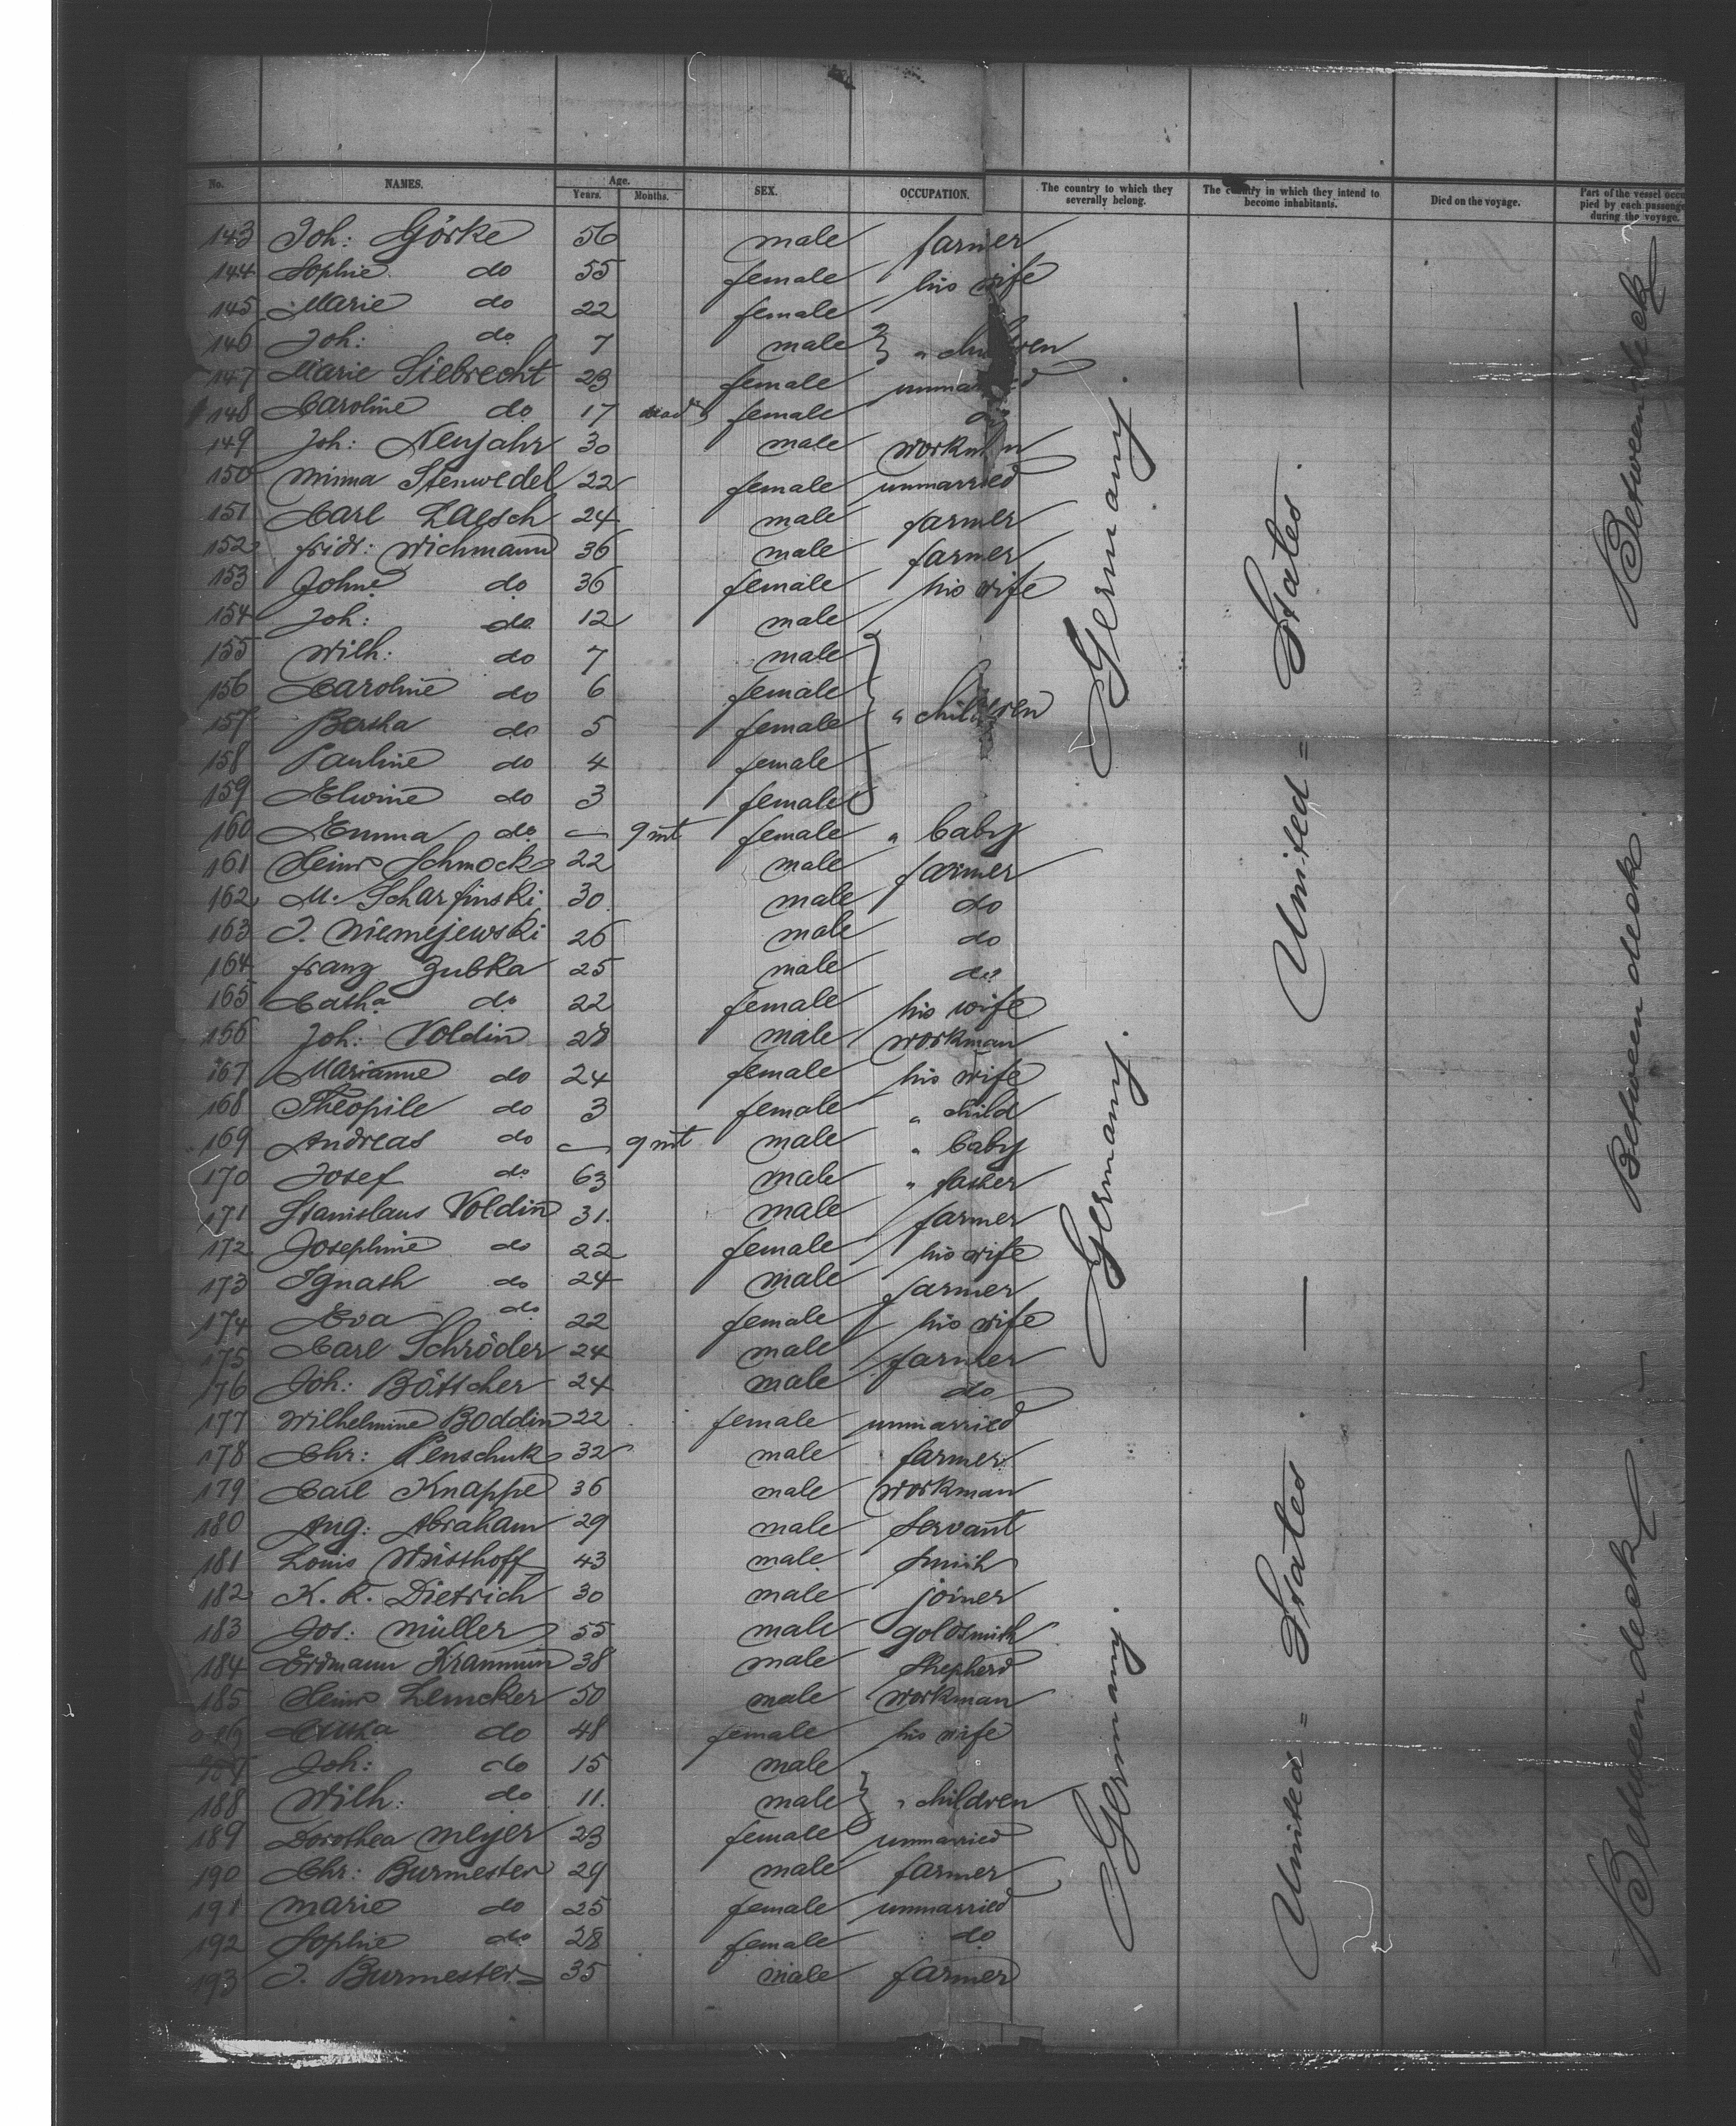 No. NAMES. Age. Years. Months. SEX. OCCUPATION. The country to which they severally belong. The country in which they intend to become inhabitants. Died on the voyage. Part of the vessel occupied by each passenger during the voyage.
143 Joh: Görke 56 male farmer
144 Sophie do 55 female his wife
145 Marie do 22 female
146 Joh: do 7 male " children
147 Marie Siebrecht 23 female unmarried
148 Caroline do 17 female do
149 Joh: Neujahr 30 male workman
150 Minna Stenwedel 22 female unmarried
151 Carl Laesch 24 male farmer
152 Fridr: Wichmann 36 male farmer
153 Johne do 36 female his wife
154 Joh: do 12 male
155 Wilh: do 7 male
156 Caroline do 6 female
157 Bertha do 5 female " children
158 Pauline do 4 female
159 Elwine do 3 female
160 Emma do — 9 mt female " baby
161 Heinr Schmock 22 male farmer
162 M. Scharfinski 30 male do
163 J. Niemejewski 26 male do
164 Franz Zubka 25 male do
165 Catha do 22 female his wife
166 Joh: Voldin 28 male workman
167 Marianne do 24 female his wife
168 Theopile do 3 female " child
169 Andreas do — 9 mt male " baby
170 Josef do 63 male " father
171 Stanislaus Voldin 31. male farmer
172 Josephine do 22 female his wife
173 Ignath do 24 male farmer
174 Eva do 22 female his wife
175 Carl Schröder 24 male farmer
176 Joh: Böttcher 24 male do
177 Wilhelmine Boddin 22 female unmarried
178 Chr: Penschuk 32 male farmer
179 Carl Knappe 36 male workman
180 Aug: Abraham 29 male servant
181 Louis Wüsthoff 43 male smith
182 K. R. Dietrich 30 male joiner
183 Jos: Müller 55 male goldsmith
184 Erdmann 38 male shepherd
185 Heinr Lemcker 50 male workman
do 48 female his wife
Joh: do 15 male
188 Wilh: do 11. male " children
189 Dorothea Meyer 23 female unmarried
190 Chr: Burmester 29 male farmer
191 Marie do 25 female unmarried
192 Sophie do 28 female do
193 J. Burmester 35 male farmer
Germany.
Germany.
Germany.
United = States. —
United = States. —
Between deck
Between deck.
Between deck.